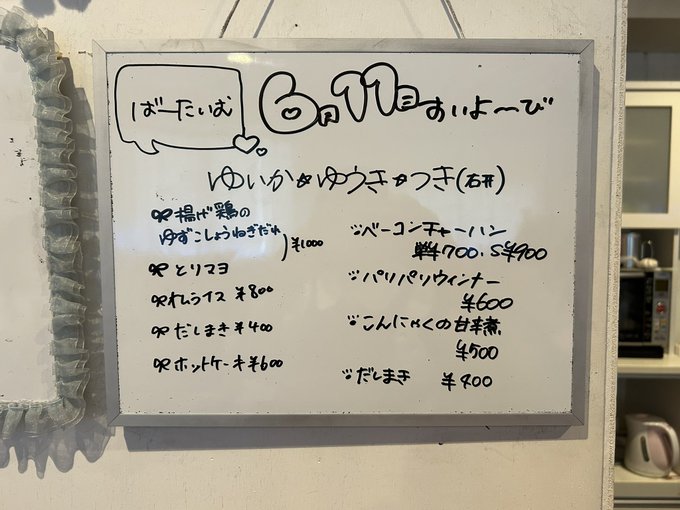 ばーたいむ
6月11日 すいよ〜び
ゆいか☆ゆうき☆つき(研)
揚げ鶏の
ゆずこしょうねぎだれ
¥1,000
とりマヨ
オムライス ¥800
だしまき ¥400
ホットケーキ ¥600
ベーコンチャーハン
単¥700・S¥900
パリパリウィンナー
¥600
こんにゃくの甘辛煮
¥500
だしまき ¥400